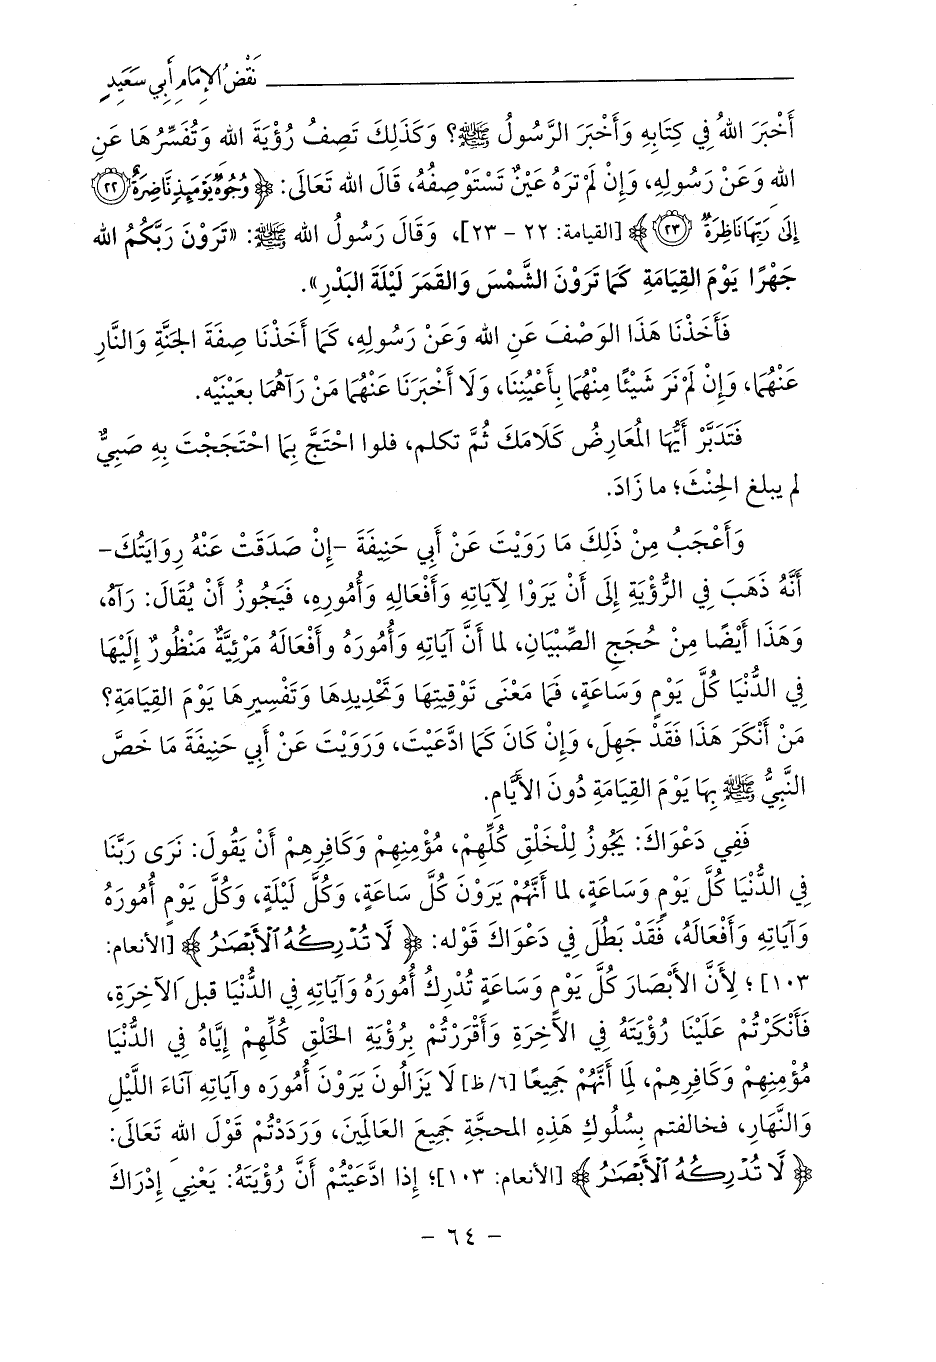 نَقْضُ الإِمَامِ أَبِي سَعِيدٍ
أَخْبَرَ اللهُ فِي كِتَابِهِ وَأَخْبَرَ الرَّسُولُ ﷺ؟ وَكَذَلِكَ تَصِفُ رُؤْيَةَ الله وَتُفَسِّرُهَا عَنِ
الله وَعَنْ رَسُولِهِ، وَإِنْ لَمْ تَرَهُ عَيْنٌ تَسْتَوْصِفُهُ، قَالَ الله تَعَالَى: ﴿ وُجُوهٌ يَوْمَئِذٍ نَّاضِرَةٌ ٢٢
إِلَىٰ رَبِّهَا نَاظِرَةٌ ٢٣ ﴾ [القيامة: ٢٢ - ٢٣]، وَقَالَ رَسُولُ الله ﷺ: «تَرَوْنَ رَبَّكُمُ الله
جَهْرًا يَوْمَ القِيَامَةِ كَمَا تَرَوْنَ الشَّمْسَ وَالقَمَرَ لَيْلَةَ البَدْرِ».
فَأَخَذْنَا هَذَا الوَصْفَ عَنِ الله وَعَنْ رَسُولِهِ، كَمَا أَخَذْنَا صِفَةَ الجَنَّةِ وَالنَّارِ
عَنْهُمَا، وَإِنْ لَمْ نَرَ شَيْئًا مِنْهُمَا بِأَعْيُنِنَا، وَلَا أَخْبَرَنَا عَنْهُمَا مَنْ رَآهُمَا بعَيْنَيْه.
فَتَدَبَّرْ أَيُّهَا المُعَارِضُ كَلَامَكَ ثُمَّ تكلم، فلوا احْتَجَّ بِمَا احْتَجَجْتَ بِهِ صَبِيٌّ
لم يبلغ الحِنْثَ؛ ما زَادَ.
وَأَعْجَبُ مِنْ ذَلِكَ مَا رَوَيْتَ عَنْ أَبِي حَنِيفَةَ -إِنْ صَدَقَتْ عَنْهُ رِوَايَتُكَ-
أَنَّهُ ذَهَبَ فِي الرُّؤْيَةِ إِلَى أَنْ يَرَوْا لِآيَاتِهِ وَأَفْعَالِهِ وَأُمُورِهِ، فَيَجُوزُ أَنْ يُقَالَ: رَآهُ،
وَهَذَا أَيْضًا مِنْ حُجَجِ الصِّبْيَانِ، لما أَنَّ آيَاتِهِ وَأُمُورَهُ وأَفْعَالَهُ مَرْئِيَّةٌ مَنْظُورٌ إِلَيْهَا
فِي الدُّنْيَا كُلَّ يَوْمٍ وَسَاعَةٍ، فَمَا مَعْنَى تَوْقِيتِهَا وَتَحْدِيدِهَا وَتَفْسِيرِهَا يَوْمَ القِيَامَةِ؟
مَنْ أَنْكَرَ هَذَا فَقَدْ جَهِلَ، وَإِنْ كَانَ كَمَا ادَّعَيْتَ، وَرَوَيْتَ عَنْ أَبِي حَنِيفَةَ مَا خَصَّ
النَّبِيُّ ﷺ بِهَا يَوْمَ القِيَامَةِ دُونَ الأَيَّامِ.
فَفِي دَعْوَاكَ: يَجُوزُ لِلْخَلْقِ كُلِّهِمْ، مُؤْمِنِهِمْ وَكَافِرِهِمْ أَنْ يَقُولَ: نَرَى رَبَّنَا
فِي الدُّنْيَا كُلَّ يَوْمٍ وَسَاعَةٍ، لما أَنَّهُمْ يَرَوْنَ كُلَّ سَاعَةٍ، وَكُلَّ لَيْلَةٍ، وَكُلَّ يَوْمٍ أُمُورَهُ
وَآيَاتِهِ وَأَفْعَالَهُ، فَقَدْ بَطُلَ فِي دَعْوَاكَ قَوْله: ﴿ لَّا تُدْرِكُهُ ٱلْأَبْصَٰرُ ﴾ [الأنعام:
١٠٣]؛ لِأَنَّ الأَبْصَارَ كُلَّ يَوْمٍ وَسَاعَةٍ تُدْرِكُ أُمُورَهُ وَآيَاتِهِ فِي الدُّنْيَا قبل الآخِرَةِ،
فَأَنْكَرْتُمْ عَلَيْنَا رُؤْيَتَهُ فِي الآخِرَةِ وَأَقْرَرْتُمْ بِرُؤْيَةِ الخَلْقِ كُلِّهِمْ إِيَّاهُ فِي الدُّنْيَا
مُؤْمِنِهِمْ وَكَافِرِهِمْ، لِمَا أَنَّهُمْ جَمِيعًا [٦/ظ] لَا يَزَالُونَ يَرَوْنَ أُمُورَه وآيَاتِهِ آنَاءَ اللَّيْلِ
وَالنَّهَارِ، فخالفتم بِسُلُوكِ هَذِهِ المحجَّةِ جَمِيعَ العَالَمِينَ، وَرَدَدْتُمْ قَوْلَ الله تَعَالَى:
﴿ لَّا تُدْرِكُهُ ٱلْأَبْصَٰرُ ﴾ [الأنعام: ١٠٣]؛ إِذا ادَّعَيْتُمْ أَنَّ رُؤْيَتَهُ: يَعْنِي إِدْرَاكَ
- ٦٤ -